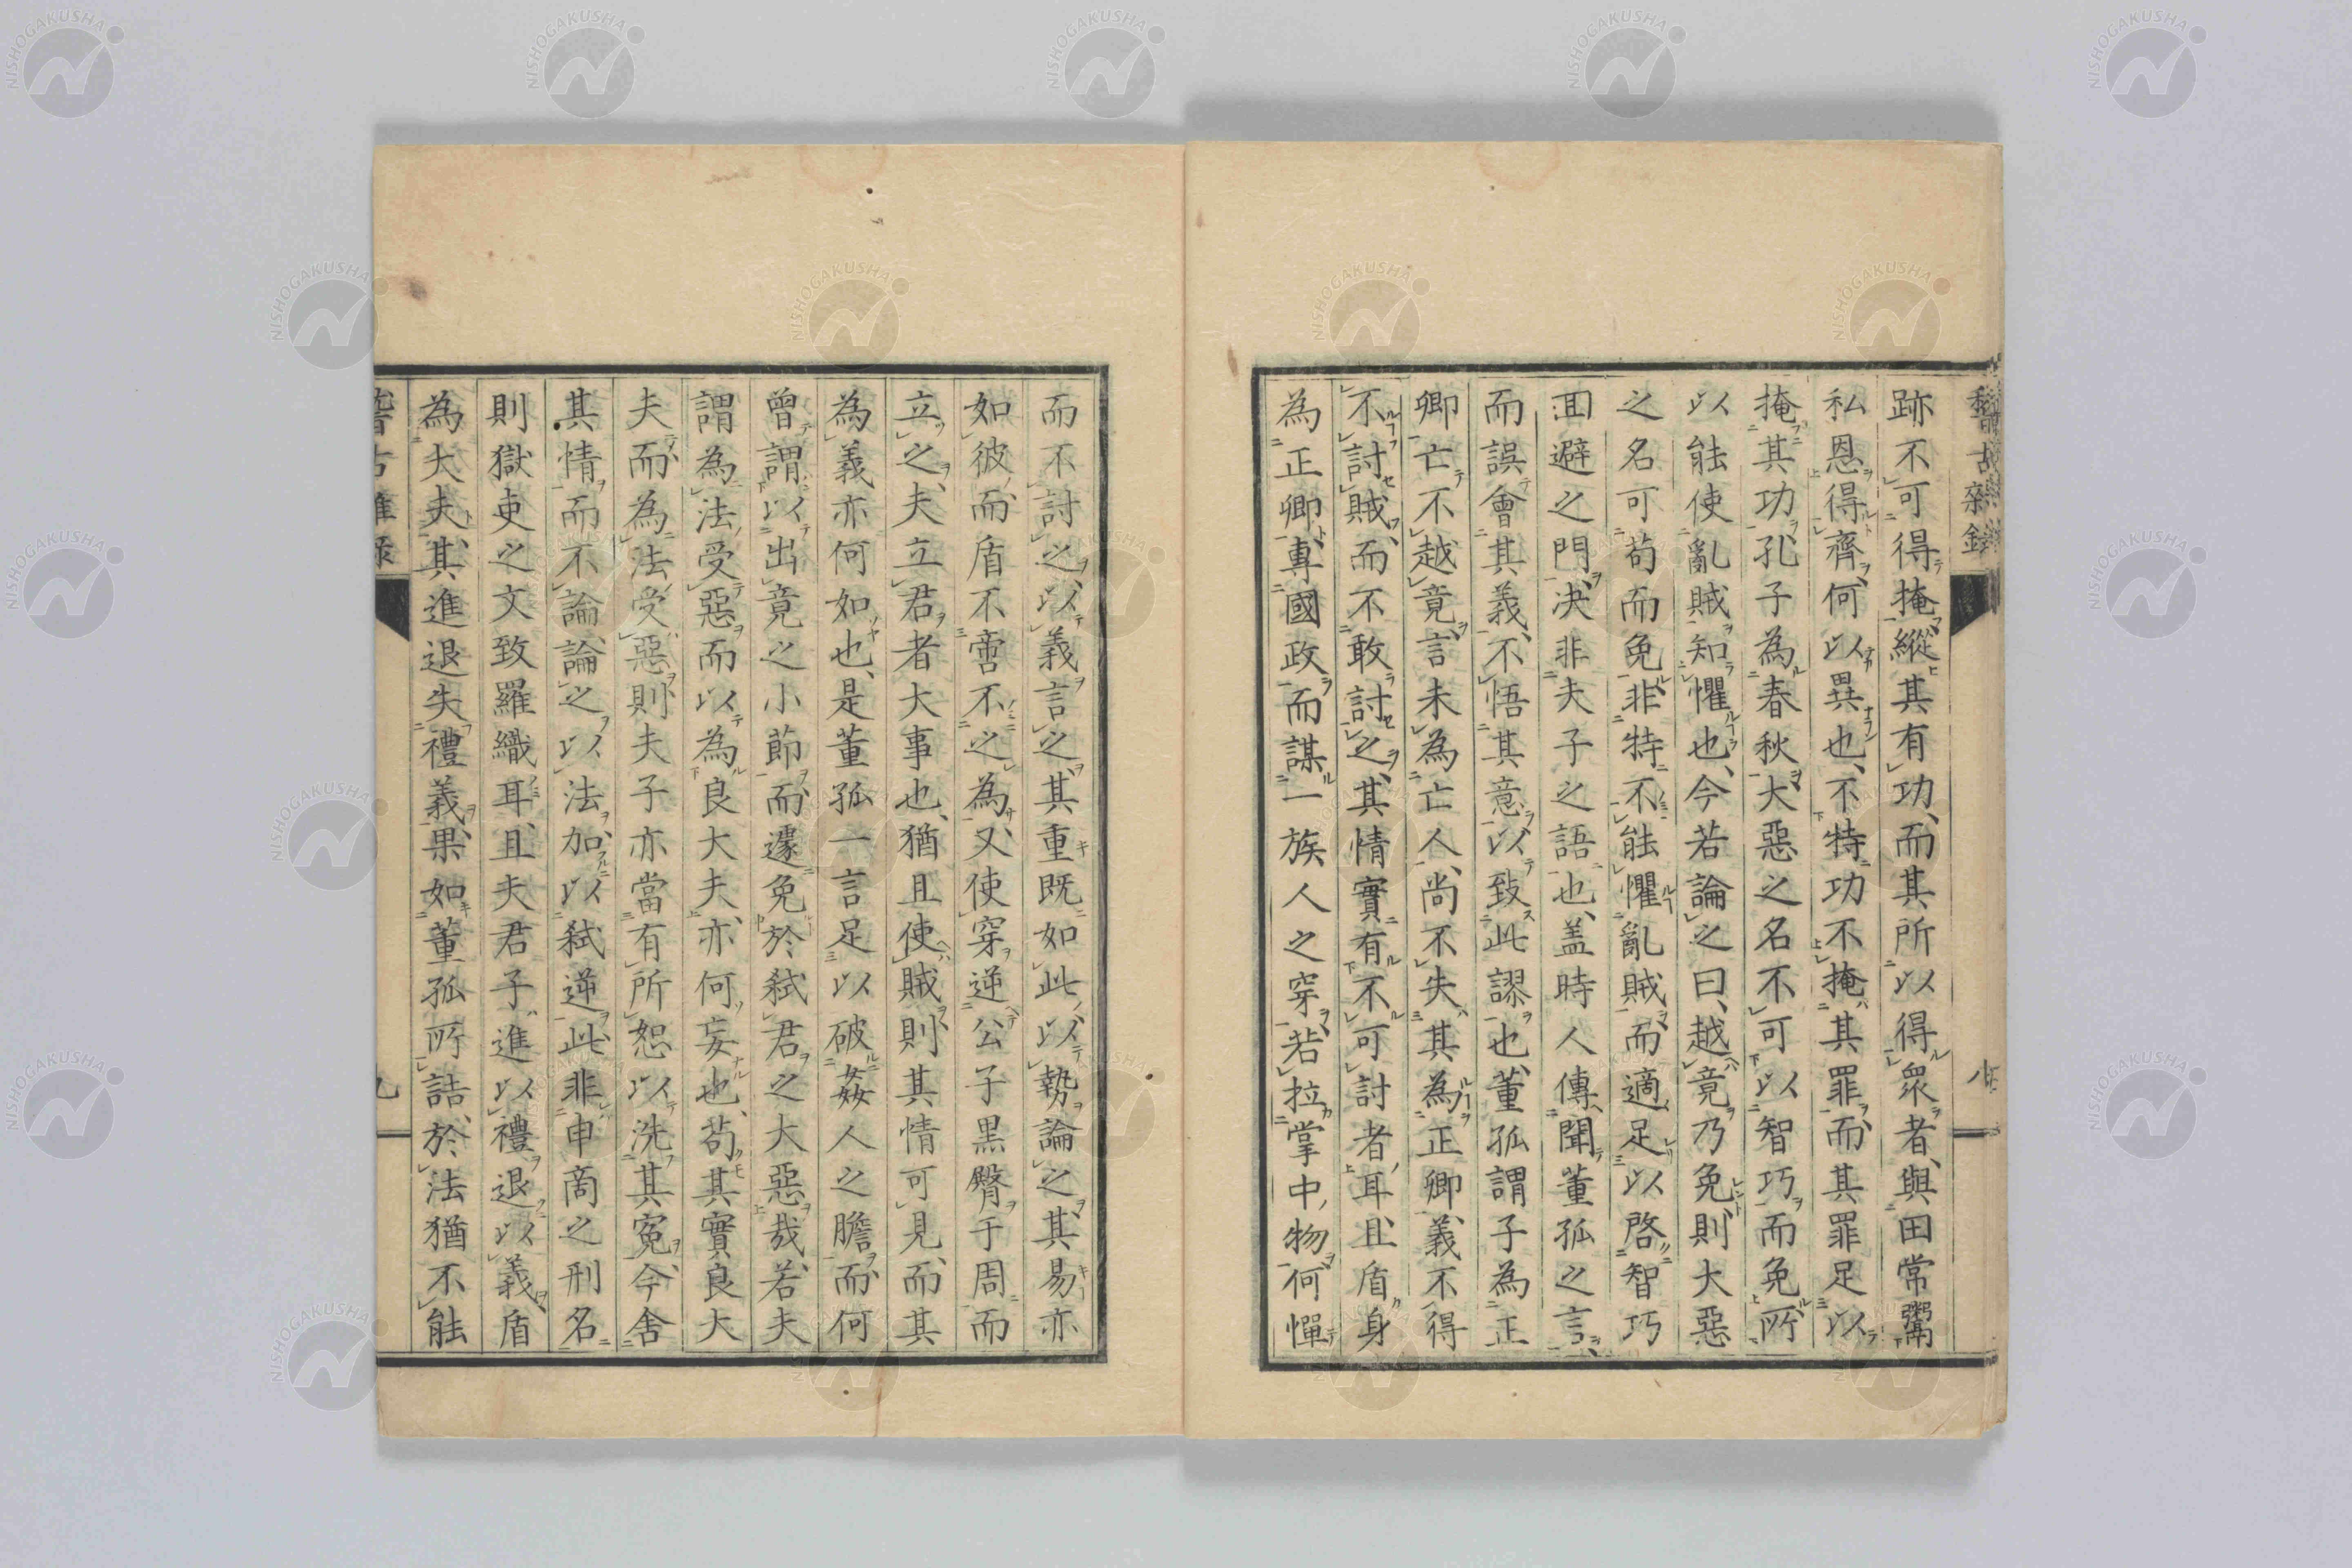 稽古雜錄
八
跡不可得掩縱其有功、而其所以得衆者、與田常鬻
私恩得齊、何以異也、不特功不掩其罪、而其罪足以
掩其功、孔子為春秋、大惡之名不可以智巧而免、所
以能使亂賊知懼也、今若論之曰、越竟乃免、則大惡
之名可苟而免、非特不能懼亂賊、而適足以啓智巧
回避之門、决非夫子之語也、盖時人傳聞董孤之言、
而誤會其義、不悟其意、以致此謬也、董孤謂子為正
卿、亡不越竟、言未為亡人、尚不失其為正卿、義不得
不討賊、而不敢討之、其情實有不可討者耳、且盾身
為正卿、專國政、而謀一族人之穿、若拉掌中物、何憚
而不討之、以義言之、其重既如此、以勢論之、其易亦
如彼、而盾不啻不之為、又使穿逆公子黒臀于周而
立之、夫立君者大事也、猶且使賊、則其情可見、而其
為義亦何如也、是董孤一言足以破姦人之膽、而何
曾謂以出竟之小節、而遽免於弑君之大惡哉、若夫
謂為法受惡而以為良大夫、亦何妄也、苟其實良大
夫而為法受惡、則夫子亦當有所恕以洗其寃、今舍
其情而不論、論之以法、加以弑逆、此非申商之刑名
則獄吏之文致羅織耳、且夫君子進以禮、退以義、盾
為大夫、其進退失禮義、果如董孤所詰、於法猶不能
稽古雜錄
九